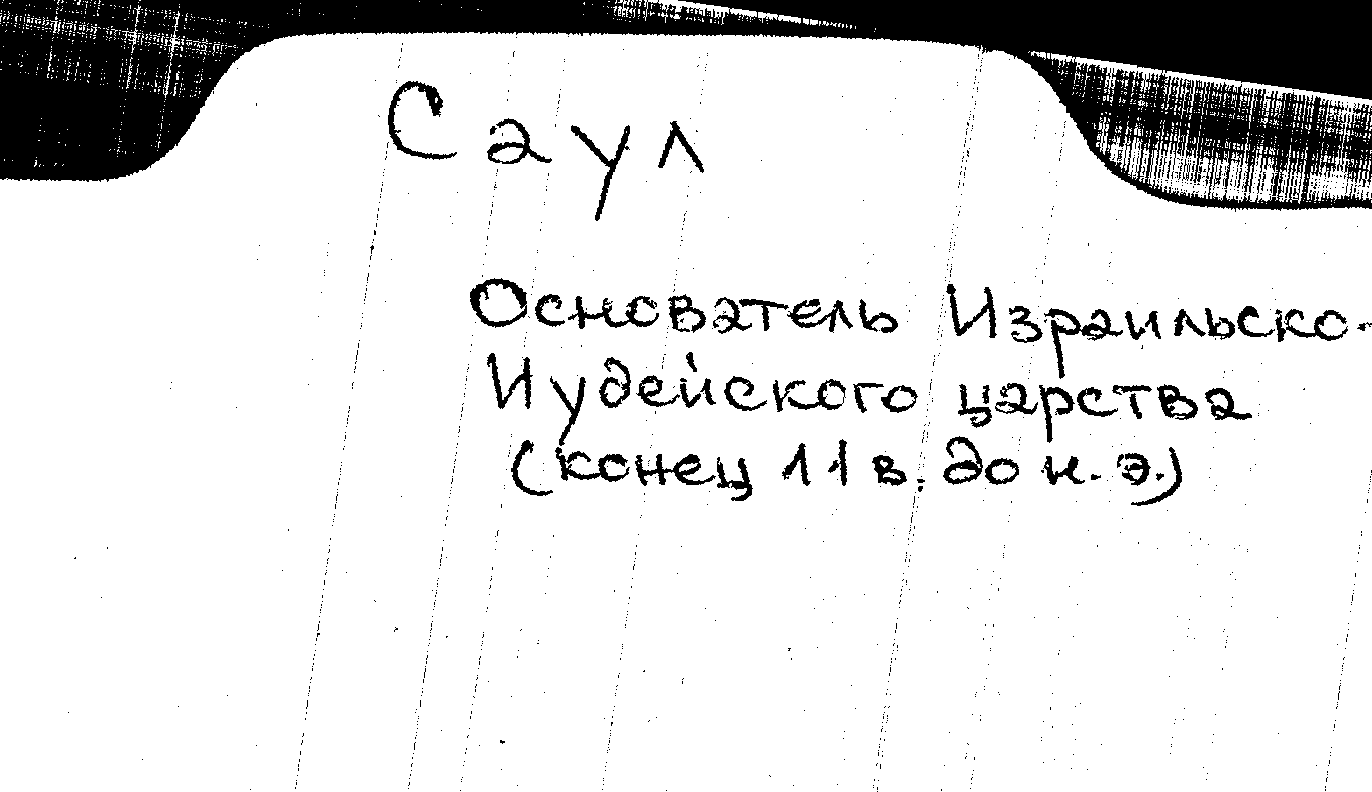 Саул
Основатель Израильско-
Иудейского царства
(конец 11 в. до н. э.)